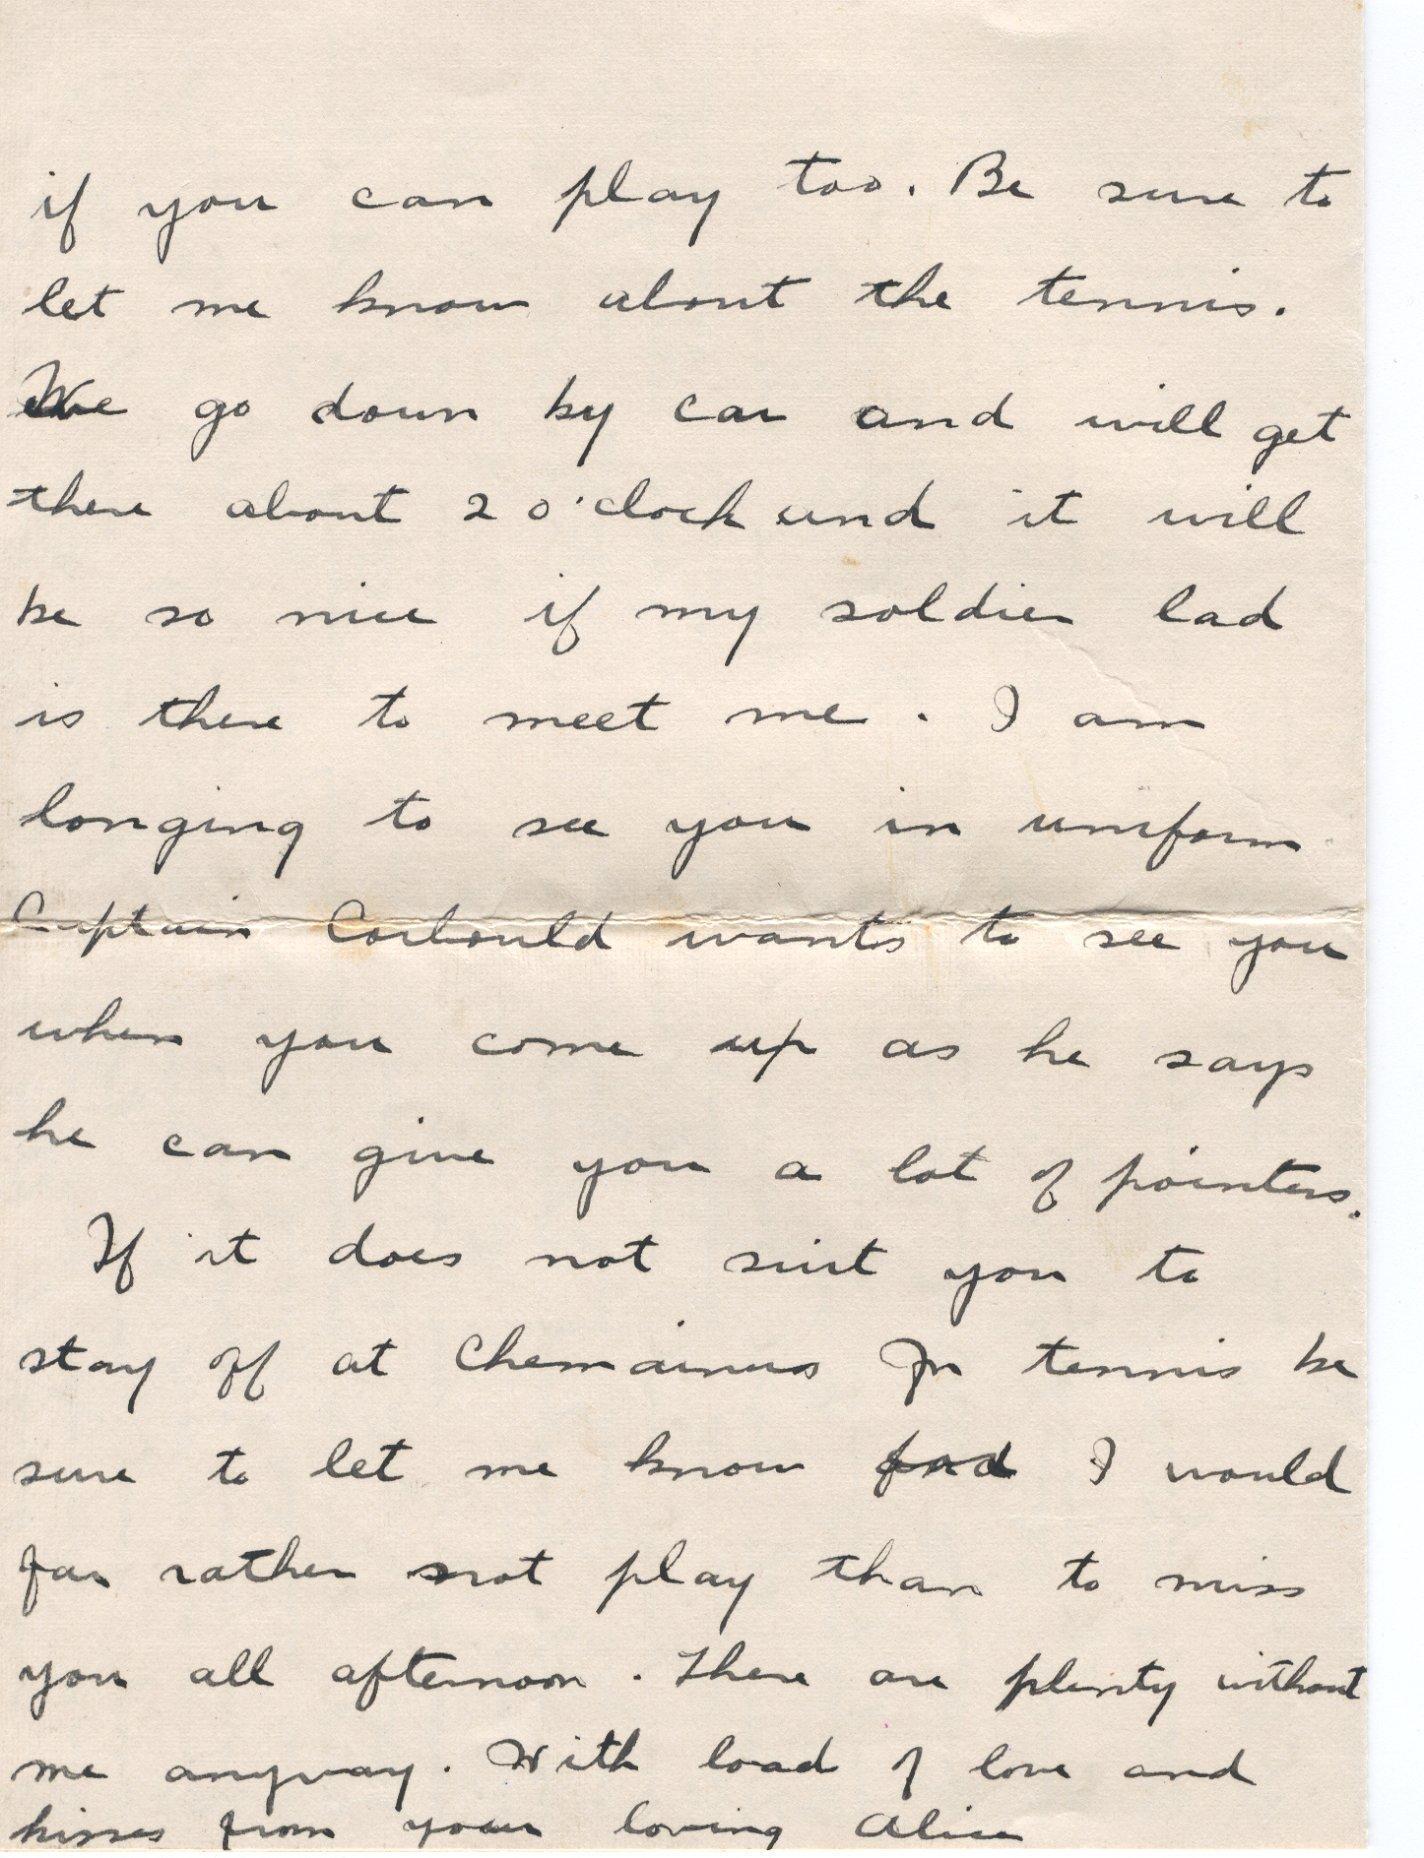 if you can play too. Be sure to
let me know about the tennis.
We go down by car and will get
there about 2 o'clock and it will
be so nice if my soldier lad
is there to meet me. I am
longing to see you in uniform
Captain Corbould wants to see you
when you come up as he says
he can give you a lot of pointers.
If it does not suit you to
stay off at Chemainus for tennis be
sure to let me know I would
far rather not play than to miss
you all afternoon. There are plenty without
me anyway. With load of love and
kisses from your loving Alice